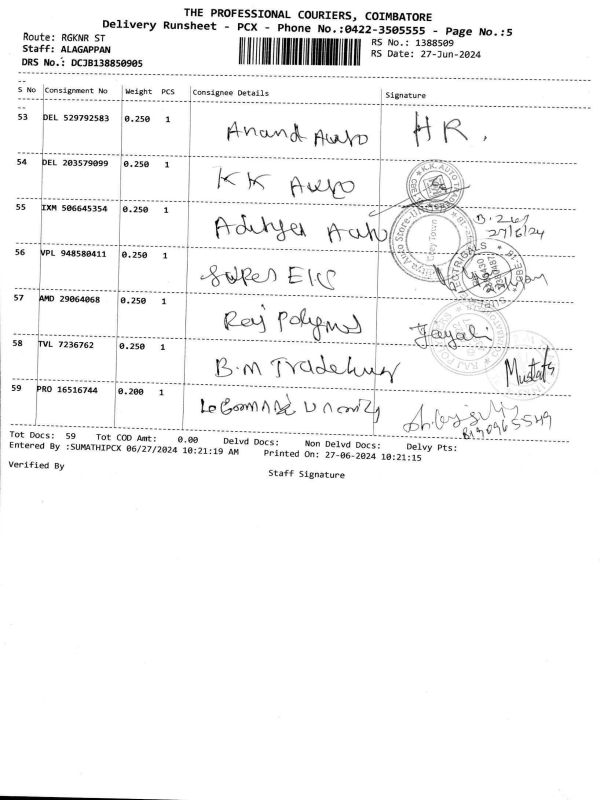 THE PROFESSIONAL COURIERS, COIMBATORE
Delivery Runsheet - PCX - Phone No.:0422-3505555 - Page No.:5
Route: RGKNR ST RS No.: 1388509
Staff: ALAGAPPAN RS Date: 27-Jun-2024
DRS No.: DCJB138850905
S No Consignment No Weight PCS Consignee Details Signature
53 DEL 529792583 0.250 1 Anand Auto HR.
54 DEL 203579099 0.250 1 KK Auto
55 IXM 506645354 0.250 1 Aditya Auto
27/6/24
56 VPL 948580411 0.250 1
57 AMD 29064068 0.250 1 Raj Jayali
58 TVL 7236762 0.250 1 B.M
59 PRO 16516744 0.200 1
Tot Docs: 59 Tot COD Amt: 0.00 Delvd Docs: Non Delvd Docs: Delvy Pts:
Entered By :SUMATHIPCX 06/27/2024 10:21:19 AM Printed On: 27-06-2024 10:21:15
Verified By Staff Signature